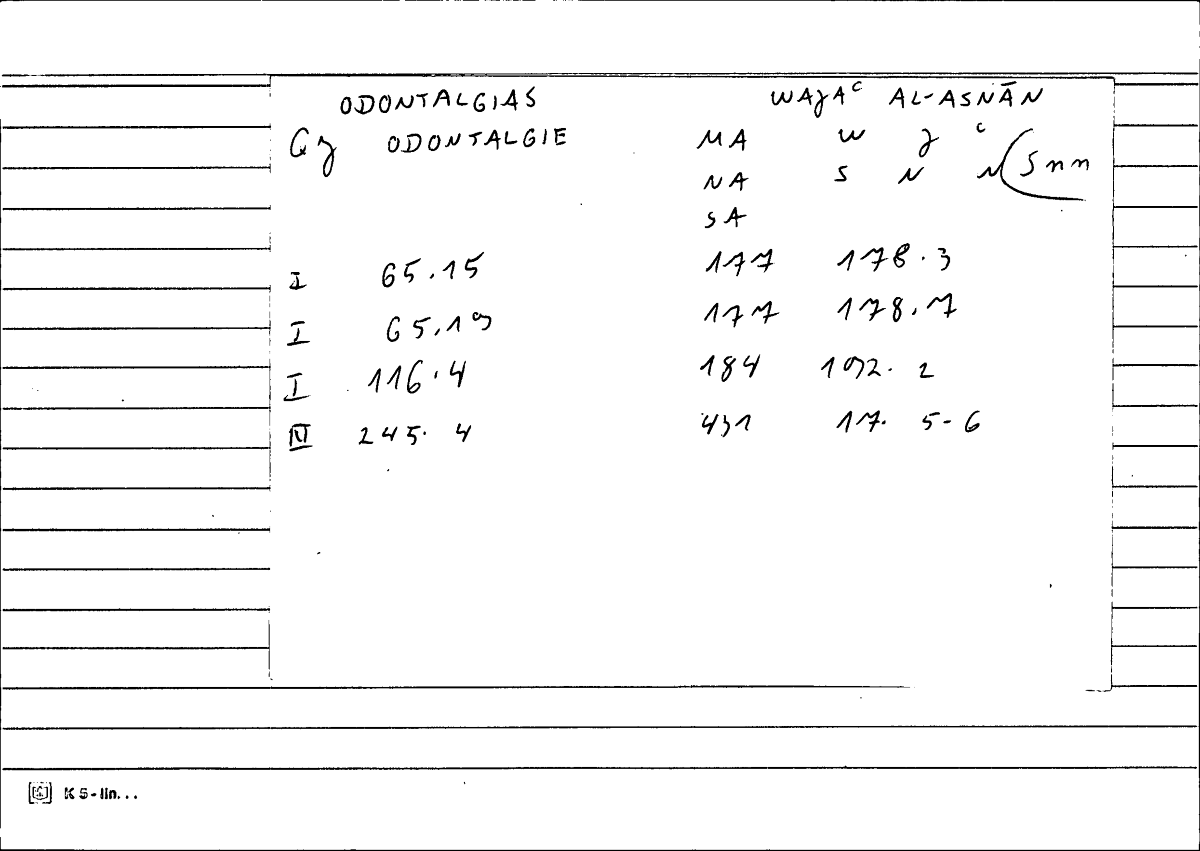 ODONTALGIAS WAJAᶜ AL-ASNĀN
Gj ODONTALGIE MA W J ᶜ
NA S N N (Snn
SA
I 65.15 177 178.3
I 65.19 177 178.7
I 116.4 184 192.2
IV 245.4 431 17.5-6
K 5-lin...